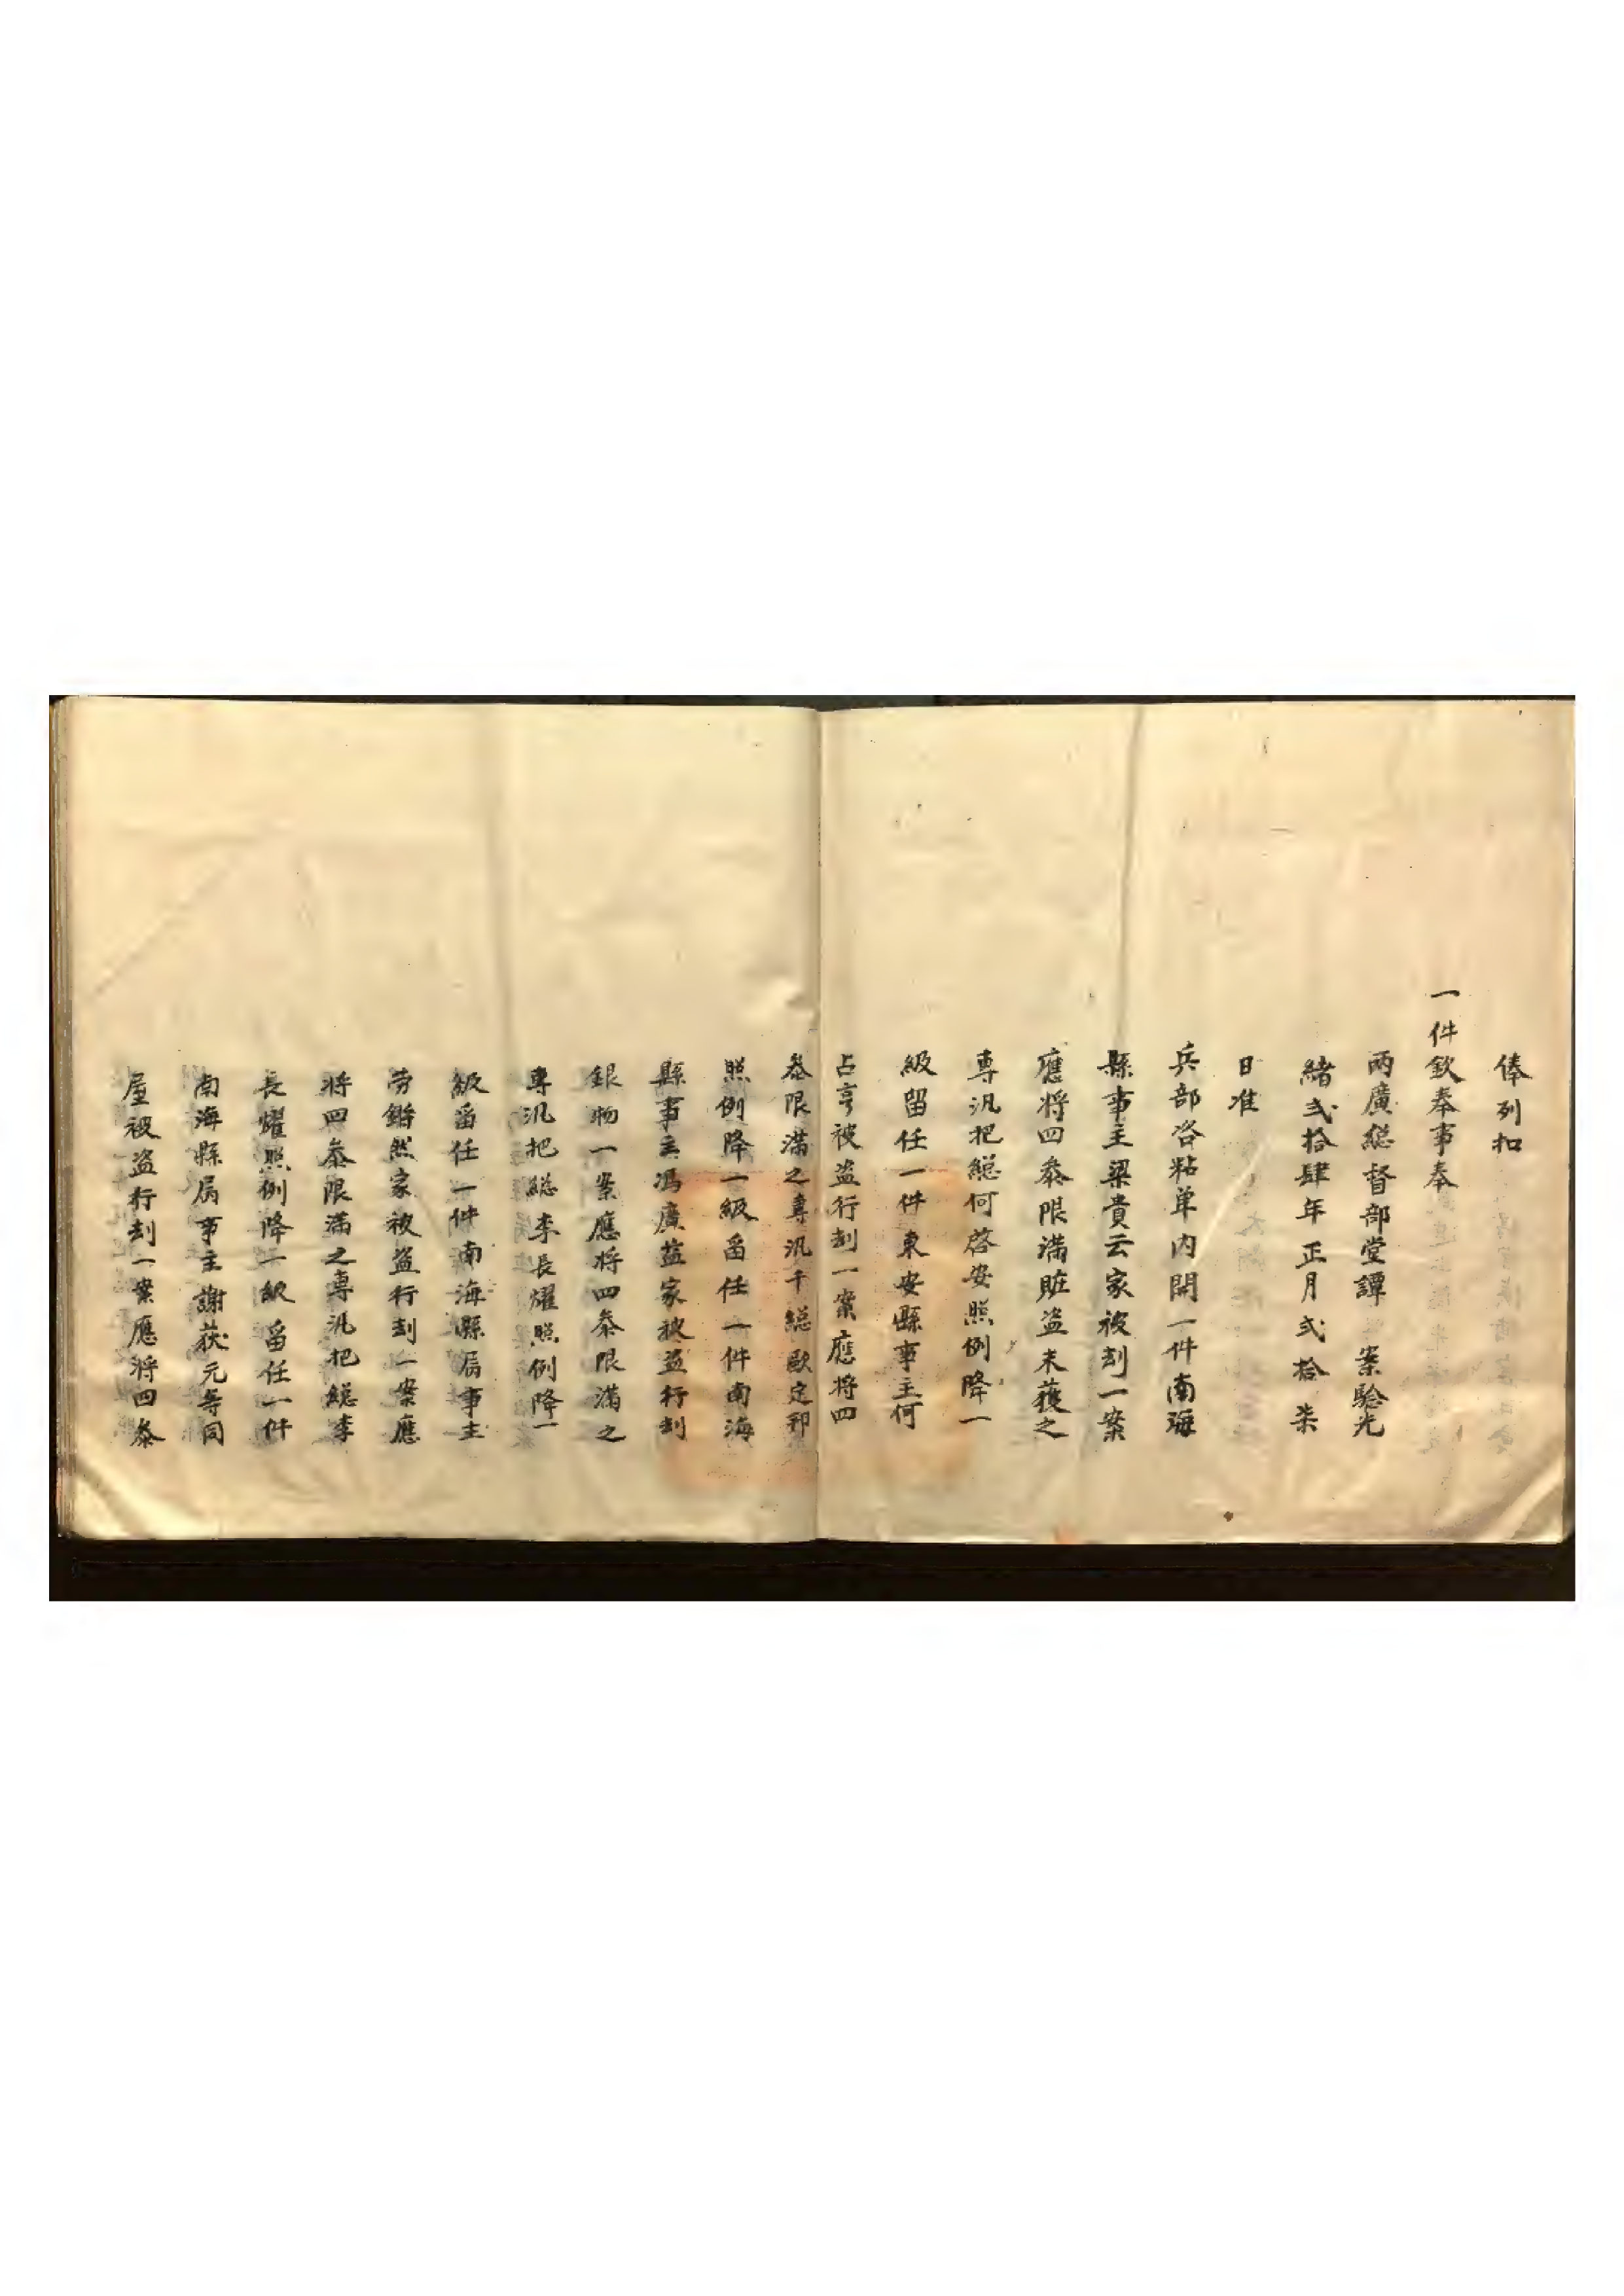 俸列扣
一件欽奉事奉
兩廣総督部堂譚 案驗光
緒弍拾肆年正月弍拾柒
日准
兵部咨粘单内開一件南海
縣事主梁貴云家被刦一案
應将四叅限満賍盗未獲之
專汛把総何啓安照例降一
級留任一件東安縣事主何
占亨被盗行刦一案應将四
叅限满之專汛千総歐定邦
照例降一級畱任一件南海
縣事主馮廣益家被盗行刦
銀物一案應将四叅限满之
專汛把総李長耀照例降一
級畱任一件南海縣属事主
劳鏘然家被盗行刦一案應
将四叅限满之專汛把総李
長耀照例降一級畱任一件
南海縣属事主謝荻元等同
屋被盗行刦一案應将四叅